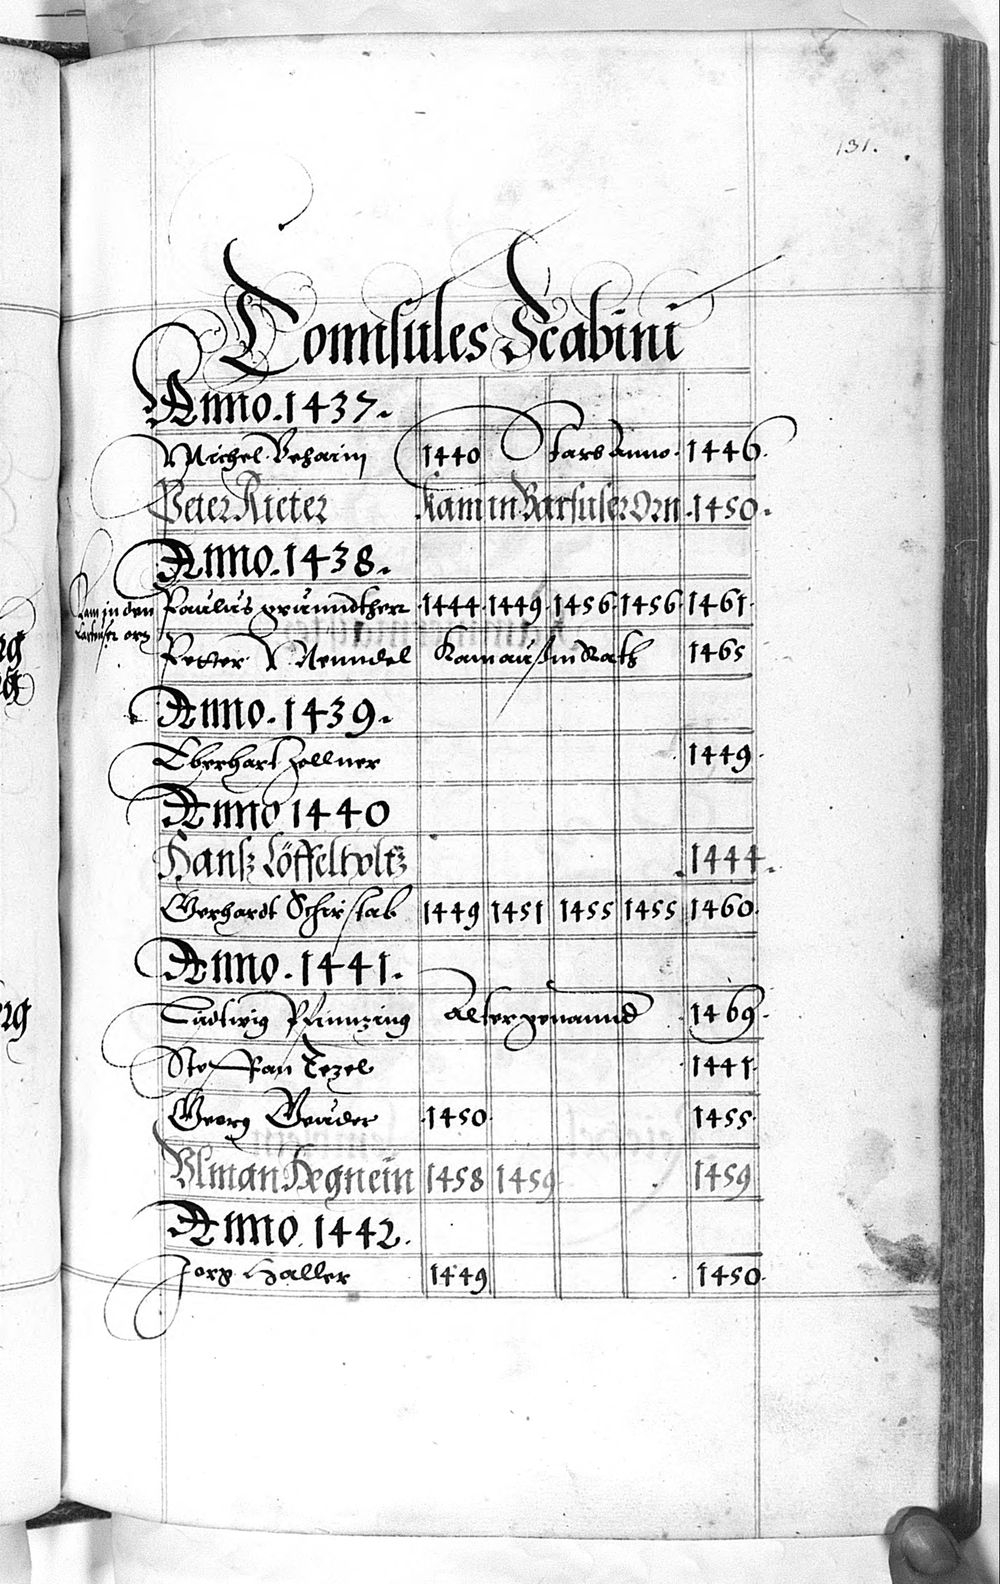 131.
Connsules Scabini
Anno. 1437.
Michel Behaim 1440 Starb Anno. 1446.
Peter Rieter Kam in Barfuser Orn. 1450.
Anno. 1438.
Kam in den
Paulus grunndtherr 1444. 1449. 1456. 1456. 1461.
Petter Nenndel Kam aus dem Rath 1465
Anno. 1439.
Eberhart Zollner 1449.
Anno 1440
Hansz Löffelholtz 1444.
Gerhardt Schirstab 1449 1451 1455 1455 1460.
Anno. 1441.
Ludtwig Pfinnzing Alter genannd 1469.
Steffan Tezel 1441.
Georg Geuder 1450. 1455.
Vlman Hegnein 1458 1459 1459
Anno 1442.
Jorg Haller 1449 1450.